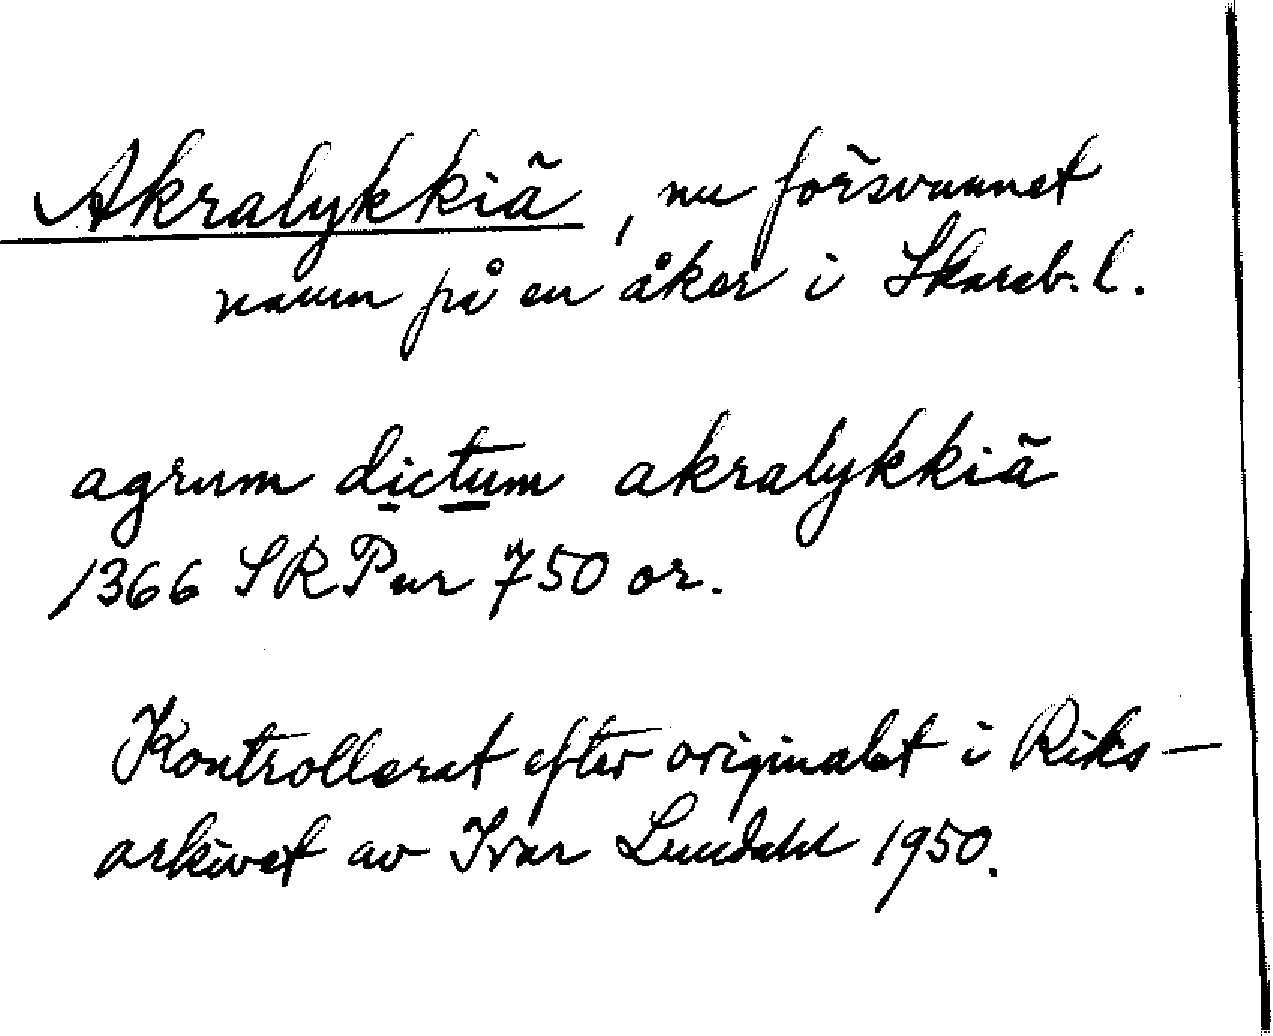 Akralykkiä, nu försvunnet
namn på en åker i Skarab. l.
agrum dictum akralykkiä
1366 SRPur 750 or.
Kontrollerat efter originalet i Riks-
arkivet av Ivar Lundahl 1950.